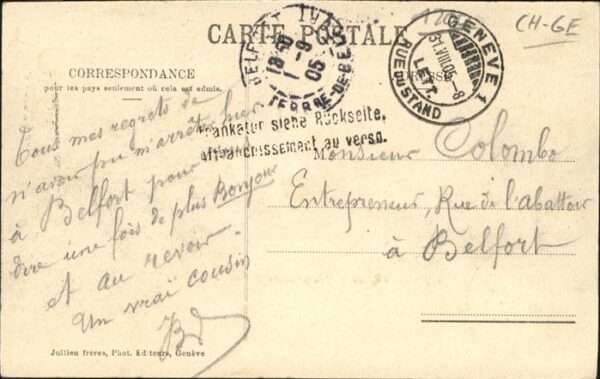 CARTE POSTALE
CH-GE
CORRESPONDANCE
pour les pays seulement où cela est admis.
BELFORT
18 50
1 - 9
05
TERRE-DE-BELFORT
GENÈVE 1
31.VIII.05.-8
LETT.
RUE DU STAND
Frankatur siehe Rückseite.
Affranchissement au verso.
Tous mes regrets de
n'avoir pu m'arrêter hier
à Belfort pour vous
dire une fois de plus Bonjour
et au revoir.
Un vrai cousin
Monsieur Colombo
Entrepreneur, Rue de l'abattoir
à Belfort
Jullien frères, Phot. Editeurs, Genève